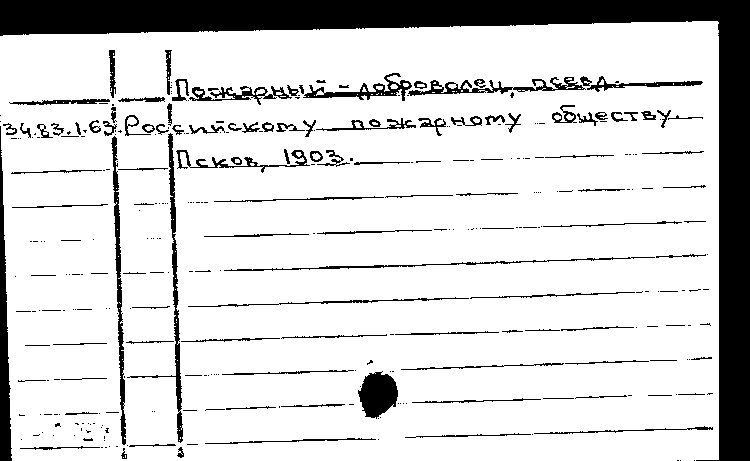 Пожарный-доброволец, псевд.
34.83.1.63. Российскому пожарному обществу.
Псков, 1903.